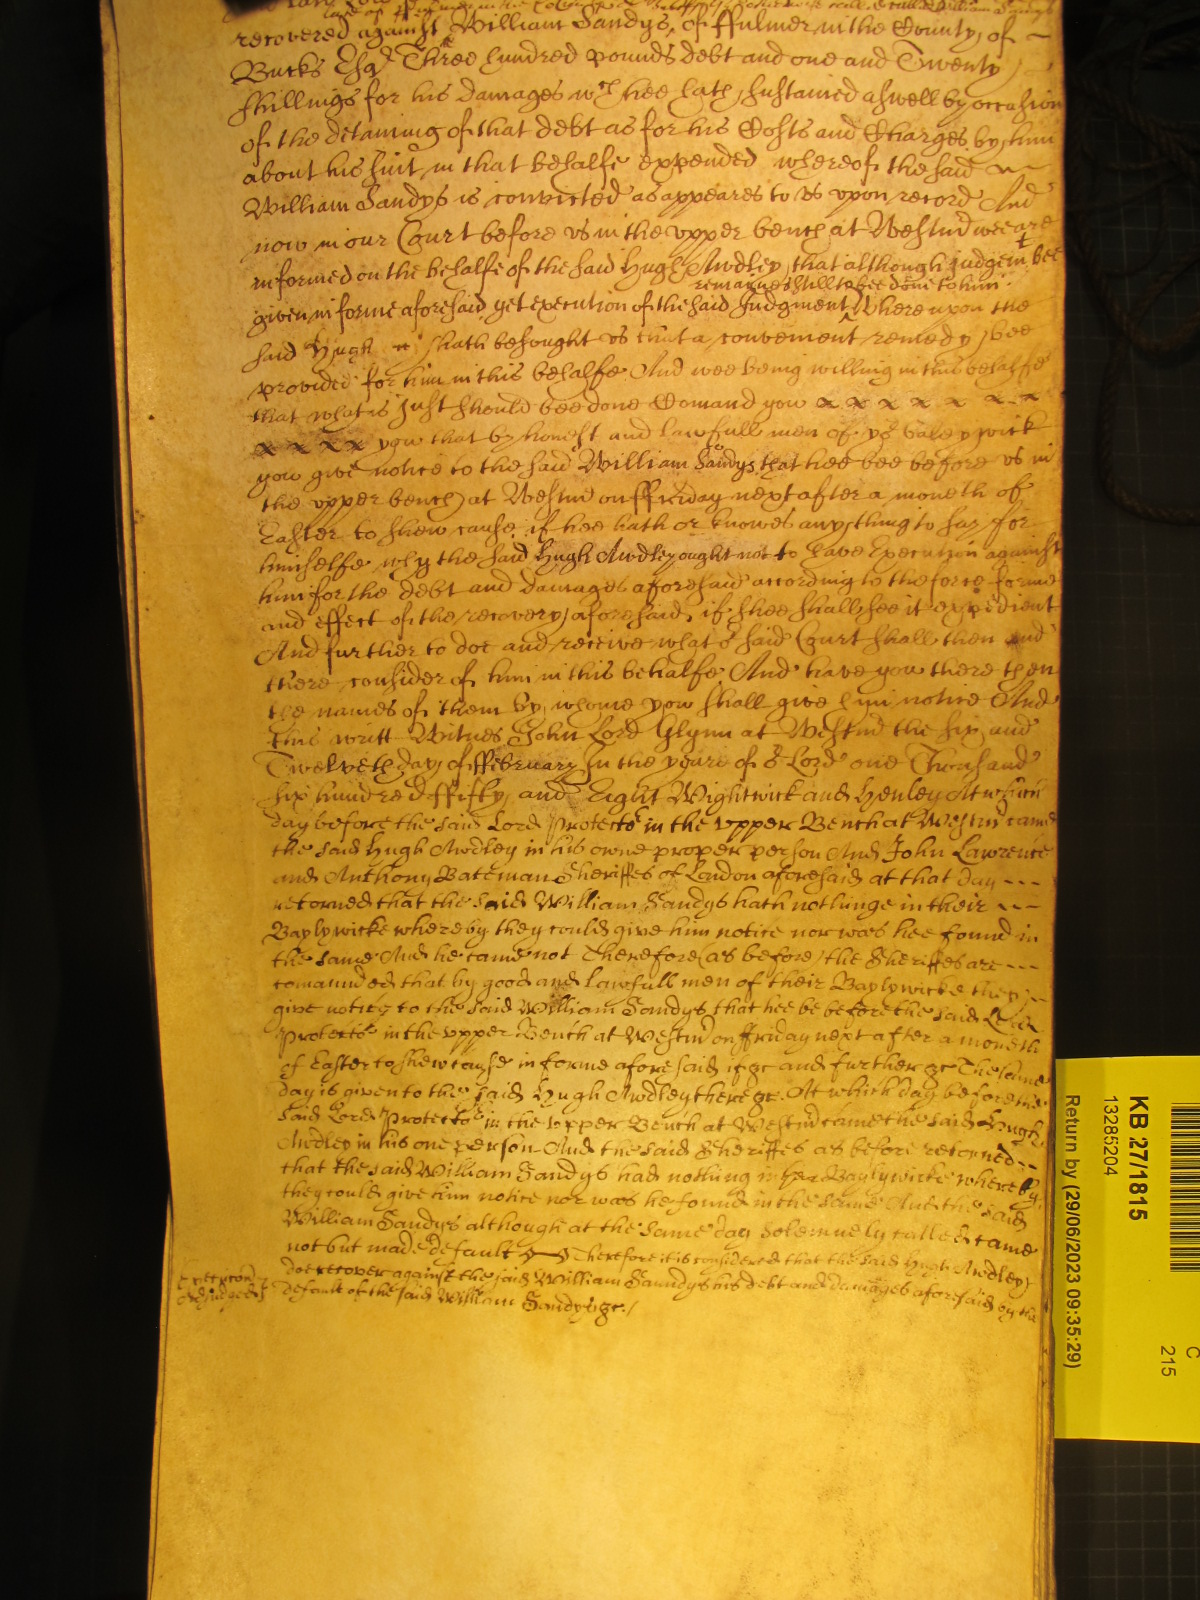 recovered against William Sandys, of ffulmer in the County of
Bucks Esqr Three hundred pounds debt and one and Twenty
shillings for his damages wch hee hath sustained aswell by occasion
of the detaining of that debt as for his Costs and Charges by him
about his suit in that behalfe expended whereof the said
William Sandys is convicted as appeares to vs vpon record And
now in our Court before vs in the vpper bench at Westmr wee are
informed on the behalfe of the said Hugh Awdley, that although judgemt bee
remaynes still to bee done to him
given in forme aforesaid yet execution of the said Judgment Whereupon the
said Hugh hath besought vs that a convenient remedy bee
provided for him in this behalfe And wee being willing in this behalfe
that what is Just should bee done Comand yow x x x x x x x
x x x x yow that by honest and lawfull men of yor baleywick
yow give notice to the said William Sandys that hee bee before vs in
the vpper bench at Westmr on ffriday next after a moneth of
Easter to shew cause if hee hath or knowes anything to say for
himselfe why the said Hugh Awdley ought not to have Execution against
him for the debt and damages aforesaid according to the force forme
and effect of the recovery aforesaid, if hee shall see it expedient
And further to doe and receive what or said Court shall then and
there consider of him in this behalfe And have yow there then
the names of them by whome yow shall give him notice And
this writt Witnes John Lord Glynn at Westmr the six and
Twelveth day of ffebruary In the yeare of or Lord one Thousand
six hundred ffifty and Eight Wightwick and Henley At which
day before the said Lord Protector in the vpper Bench at Westmr came
the said Hugh Awdley in his owne proper person And John Lawrence
and Anthony Bateman Sheriffes of London aforesaid at that day
retorned that the said William Sandys hath nothinge in their
Baylywicke whereby they could give him notice nor was hee found in
the same And he came not Therefore (as before) the Sheriffes are
comaunded that by good and lawfull men of their Baylywicke they
give notice to the said William Sandys that hee be before the said Lord
Protector in the vpper Bench at Westmr on ffriday next after a moneth
of Easter to shew cause in forme aforesaid if &c and further &c The same
day is given to the said Hugh Awdley there &c. At which day before the
said Lord Protector in the vpper Bench at Westmr came the said Hugh
Awdley in his one person And the said Sheriffes as before retorned
that the said William Sandys had nothing in Baylywicke whereby
they could give him notice nor was he found in the same And the said
William Sandys although at the same day solemnely called came
not but made default Therefore it is considered that the said Hugh Awdley
doe recover against the said William Sandys his debt and damages aforesaid by the
Execucon
Adjudged
default of the said William Sandys &c./
KB 27/1815
13285204
Return by (29/06/2023 09:35:29)
C
215